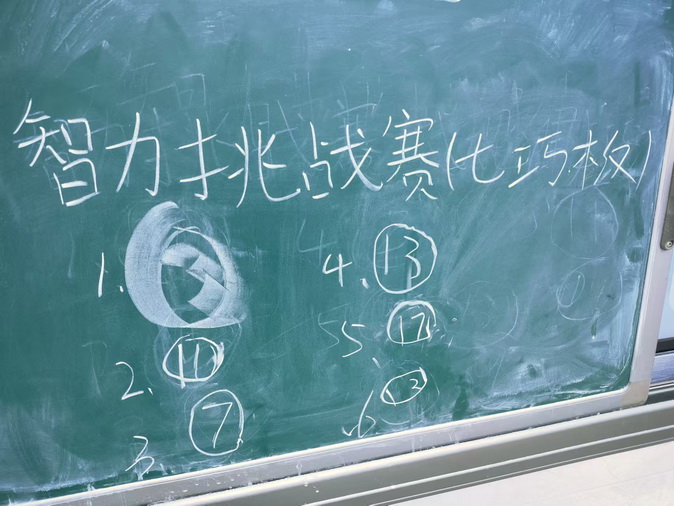 智力挑战赛(七巧板)
1.
2. 11
3 7
4. 13
5. 17
6